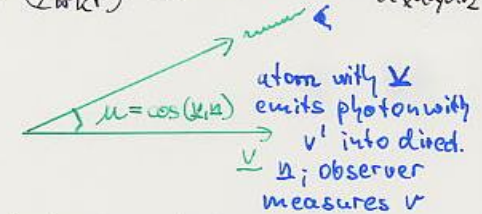 μ = cos(v,n)
v
atom with v
emits photon with
ν' into direct.
n; observer
measures ν